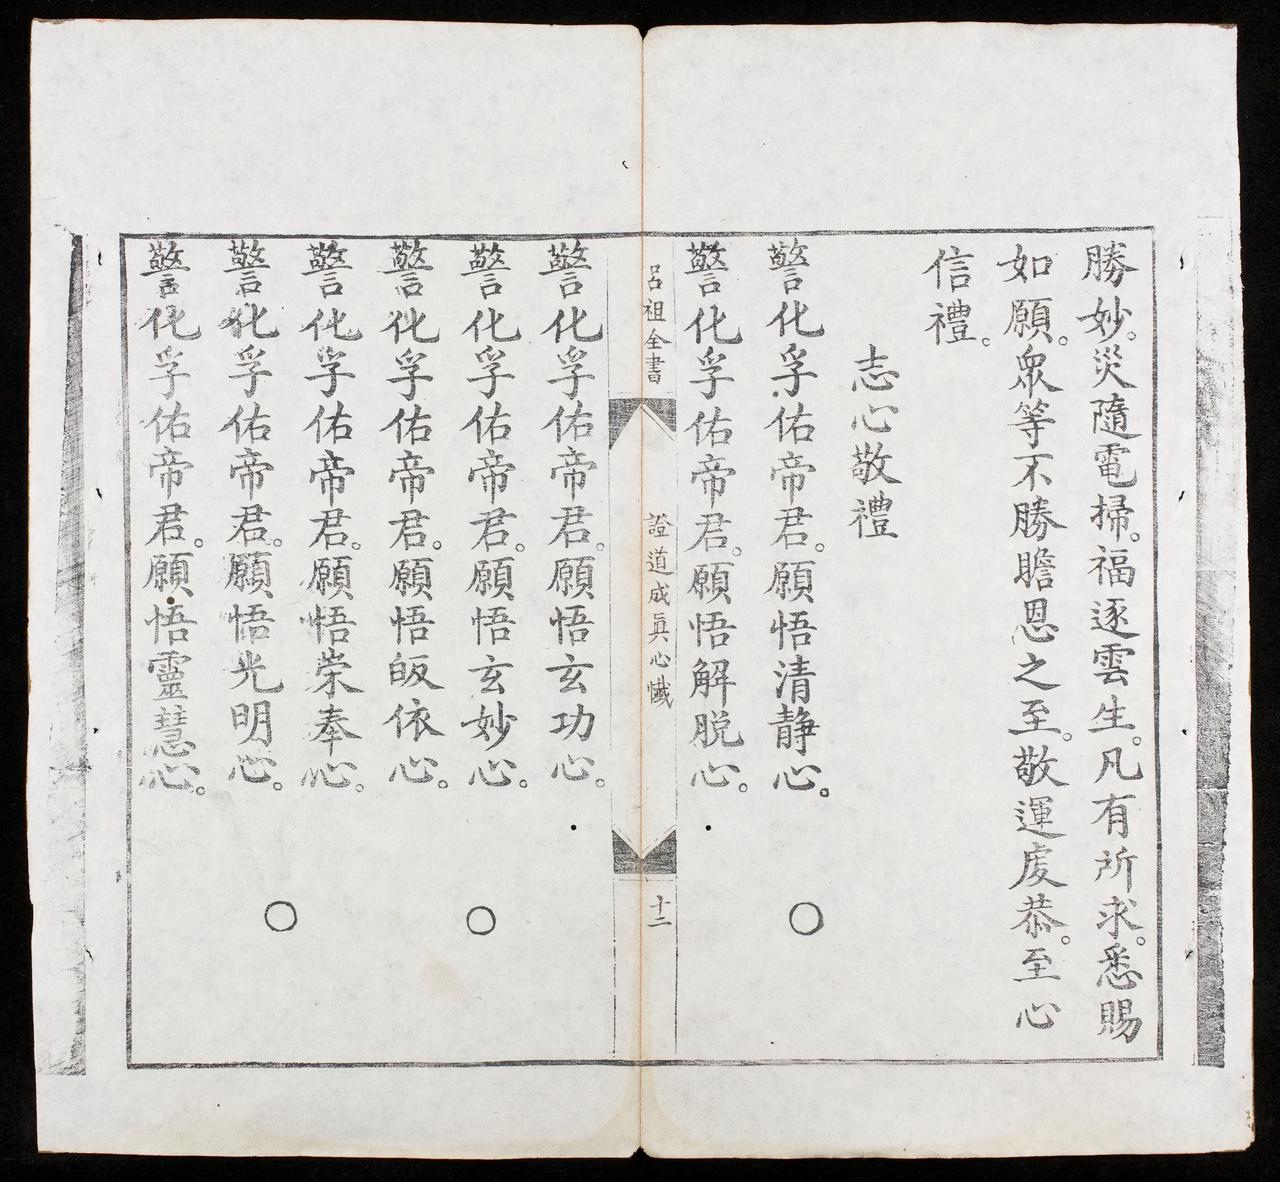 勝妙。災隨電掃。福逐雲生。凡有所求。悉賜
如願。衆等不勝瞻恩之至。敬運虔恭。至心
信禮。
志心敬禮
警化孚佑帝君。願悟清静心。
警化孚佑帝君。願悟解脱心。
呂祖全書 證道成眞心懺 十二
警化孚佑帝君。願悟玄功心。
警化孚佑帝君。願悟玄妙心。
警化孚佑帝君。願悟皈依心。
警化孚佑帝君。願悟崇奉心。
警化孚佑帝君。願悟光明心。
警化孚佑帝君。願悟靈慧心。